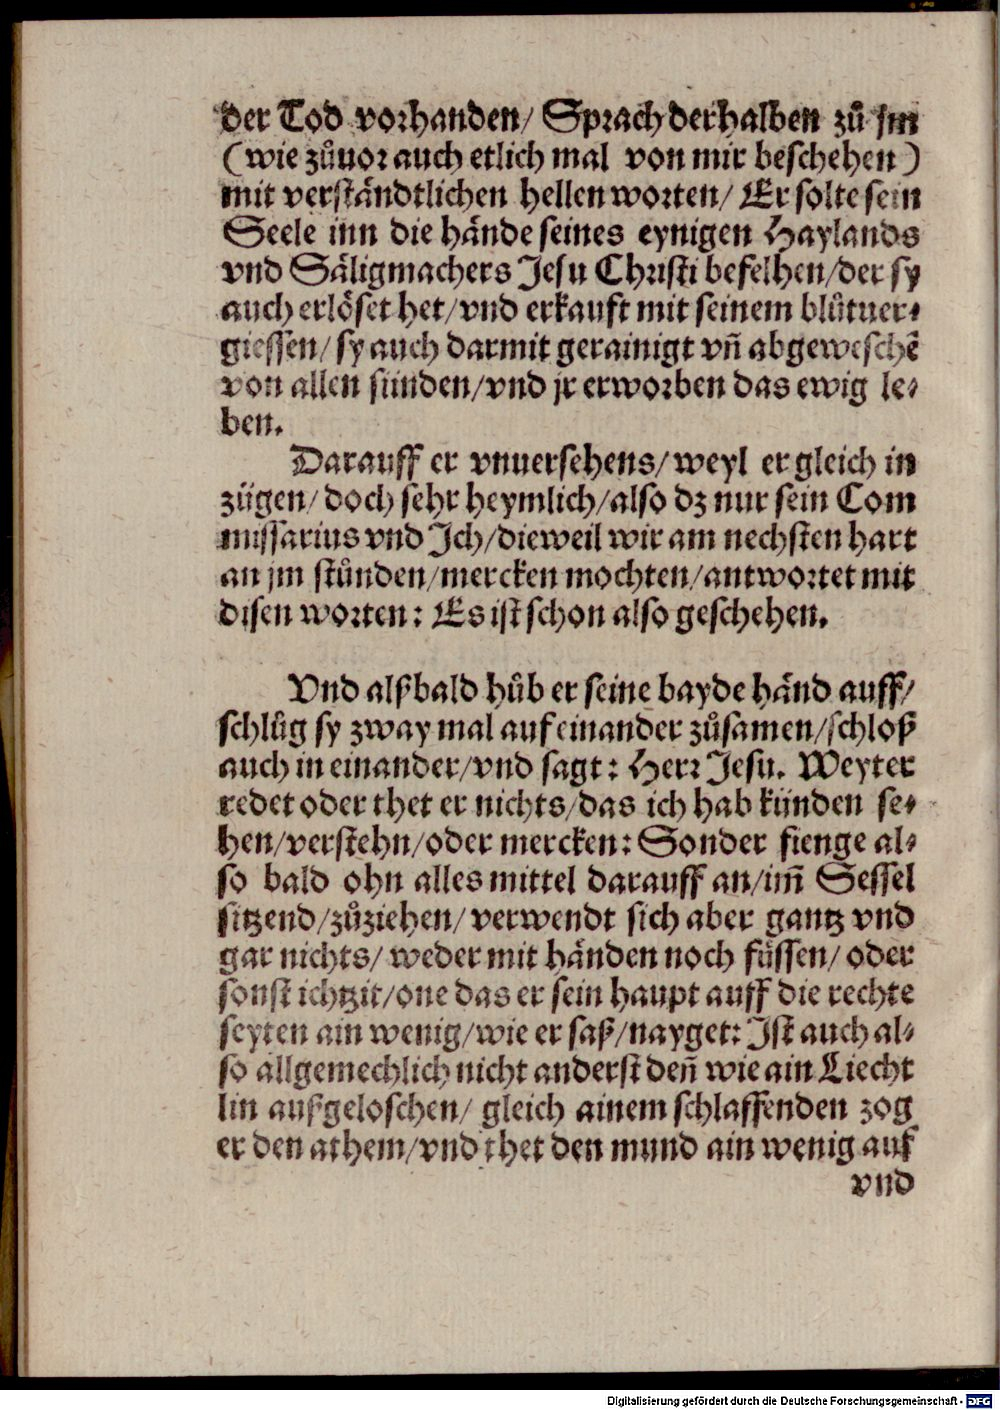 der Tod vorhanden/ Sprach derhalben zů jm
(wie zůuor auch etlich mal von mir beschehen)
mit verständtlichen hellen worten/ Er solte sein
Seele inn die hände seines eynigen Haylands
vnd Säligmachers Jesu Christi befelhen/der sy
auch erlöset het/vnd erkauft mit seinem blůtuer⸗
giessen/ sy auch darmit gerainigt vñ abgeweschẽ
von allen sünden/vnd jr erworben das ewig le⸗
ben.
Darauff er vnuersehens/weyl er gleich in
zügen/doch sehr heymlich/also dz nur sein Com
missarius vnd Ich/dieweil wir am nechsten hart
an jm stůnden/mercken mochten/antwortet mit
disen worten: Es ist schon also geschehen.
Vnd alßbald hůb er seine bayde händ auff/
schlůg sy zway mal auf einander zůsamen/schloß
auch in einander/vnd sagt: Herr Jesu. Weyter
redet oder thet er nichts/das ich hab künden se⸗
hen/verstehn/oder mercken: Sonder fienge al⸗
so bald ohn alles mittel darauff an/im̃ Sessel
sitzend/zůziehen/verwendt sich aber gantz vnd
gar nichts/ weder mit händen noch füssen/ oder
sonst ichtzit/one das er sein haupt auff die rechte
seyten ain wenig/wie er saß/nayget: Ist auch al⸗
so allgemechlich nicht anderst deñ wie ain Liecht
lin außgeloschen/ gleich ainem schlaffenden zog
er den athem/vnd thet den mund ain wenig auf
vnd
Digitalisierung gefördert durch die Deutsche Forschungsgemeinschaft - DFG